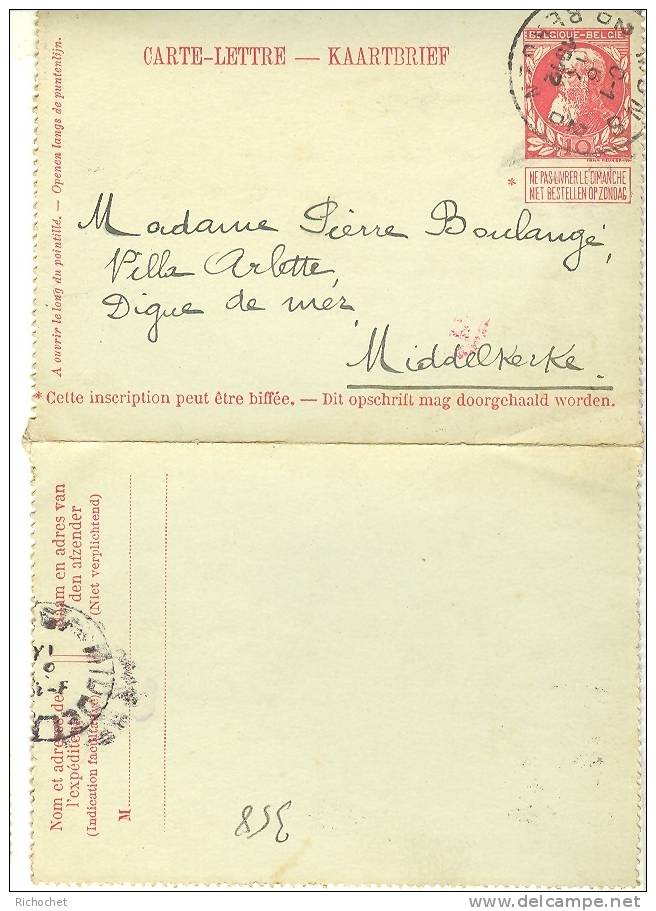 CARTE-LETTRE — KAARTBRIEF
BELGIQUE-BELGIE
10
* NE PAS LIVRER LE DIMANCHE
NIET BESTELLEN OP ZONDAG
A ouvrir le long du pointillé. — Openen langs de puntenlijn.
Madame Pierre Boulangé,
Villa Arlette,
Digue de mer
Middelkerke.
* Cette inscription peut être biffée. — Dit opschrift mag doorgehaald worden.
Naam en adres van
den afzender
(Niet verplichtend)
Nom et adresse de
l'expéditeur
(Indication facultative)
M
Richochet
DELCAMPE.NET